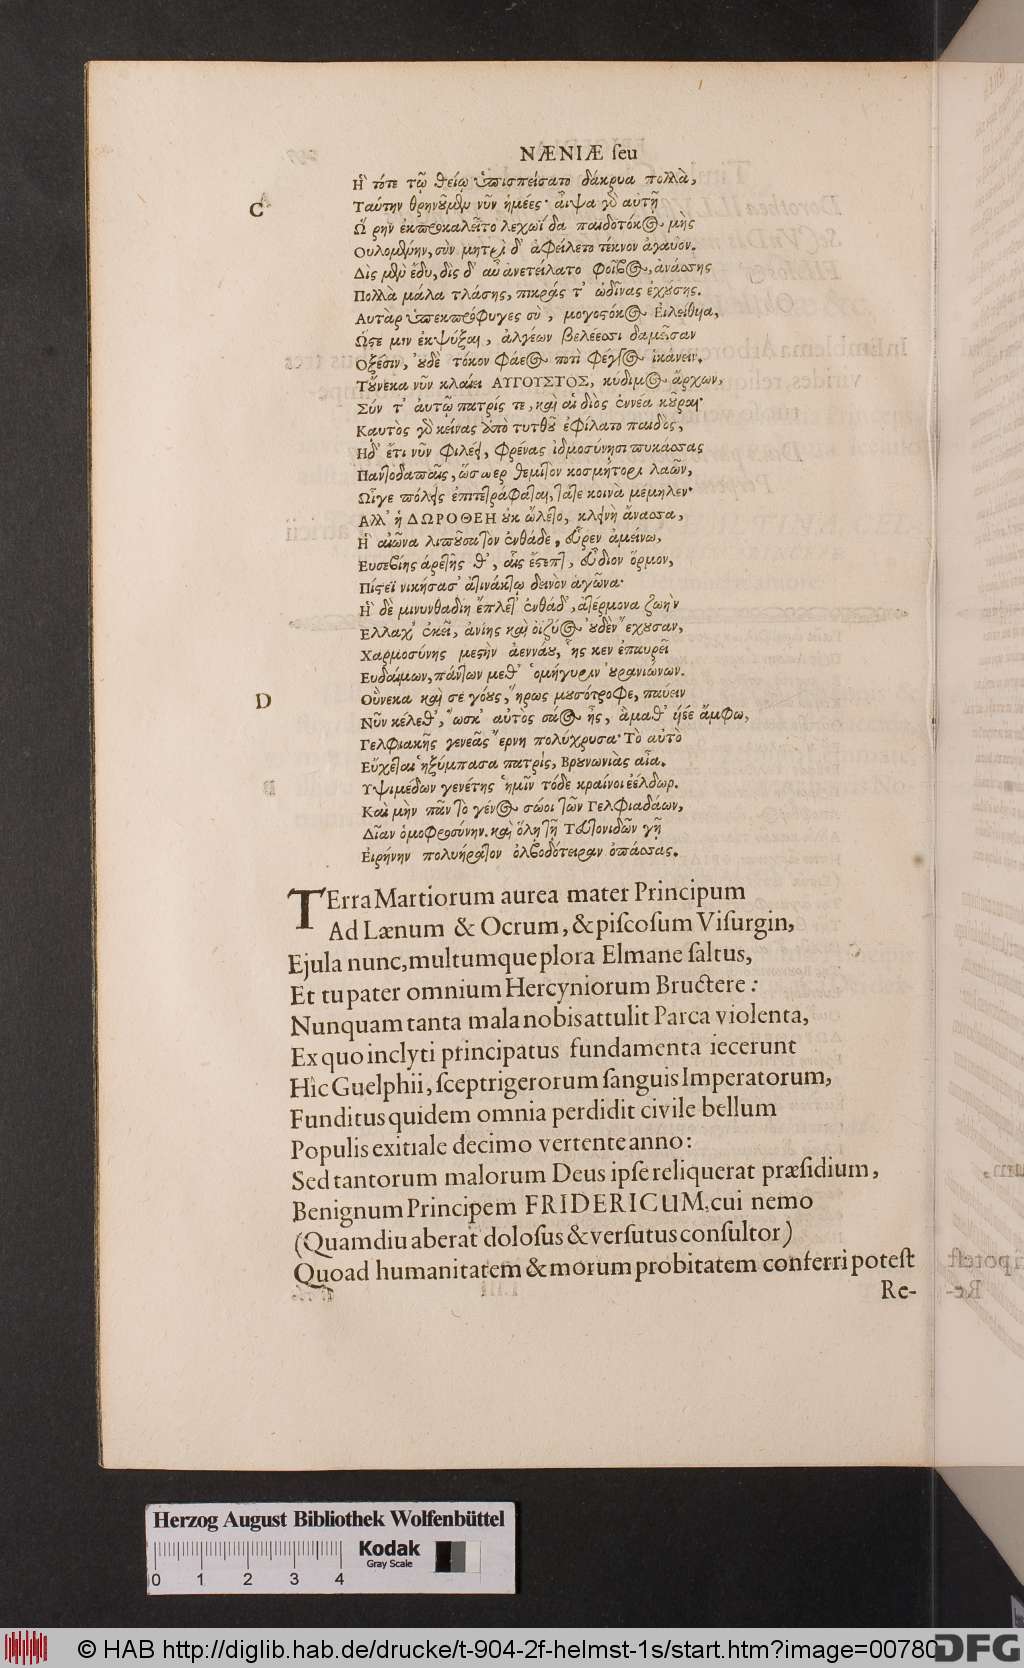 NÆNIÆ ſeu
Ἢ τότε τῷ θείῳ ὑποσπείσατο δάκρυα πολλὰ,
C
Ταύτην θρηνοῦμεν νῦν ἡμέες· αἶψα γὸ αὐτῇ
Ὤ ρην ἐκπροκαλεῖτο λεχωΐδα παιδοτόκος μὴς
Οὐλομένην, σὺν μητρὶ δ' ἀφείλετο τέκνον ἀγαυόν.
Δὶς μὲν ἔδυ, δὶς δ' αὖ ἀνετείλατο φοῖβος, ἀνάσσης
Πολλὰ μάλα τλάσης, πικράς τ' ὠδῖνας ἐχούσης.
Αὐτὰρ ὑπεκπρόφυγες σὺ, μογοστόκος Εἰλείθυια,
Ὥστε μιν ἐκψύξαι, ἀλγέων βελέεσσι δαμεῖσαν
Ὀξέσιν, οὐδὲ τόκον φάεος ποτὶ φέγγος ἱκάνειν.
Τοὔνεκα νῦν κλαίει ΑΥΓΟΥΣΤΟΣ, κύδιμος ἄρχων,
Σύν τ' ἀυτῷ πατρίς τε, καὶ αἱ διὸς ἐννέα κοῦραι·
Καυτὸς γὸ κείνας ἀπὸ τυτθοῦ ἐφίλατο παιδὸς,
Ηδ' ἔτι νῦν φιλέει, φρένας ἰδμοσύνησι πυκάσσας
Παντοδαπαῖς, ὥσπερ θεμιτὸν κοσμήτορι λαῶν,
Ὧιγε πόλεις ἐπιτετράφαται, τάτε κοινὰ μέμηλεν·
Αλλ' ἡ ΔΩΡΟΘΕΗ οὐκ ὤλετο, κλεινὴ ἄνασσα,
Ἢ αἰῶνα λιποῦσα τὸν ἐνθάδε, εὗρεν ἀμείνω,
Ευσεβίης ἀρετῆς θ', αἷς ἔσεπτ, εὔδιον ὅρμον,
Πίστεϊ νικήσασ' ἀτινάκτῳ δεινὸν ἀγῶνα·
Ἢ δὲ μινυνθαδίη ἔπλετ' ἐνθάδ', ἀτέρμονα ζωὴν
Ελλαχ' ἐκεῖ, ἀνίης καὶ ὀϊζύος οὐδὲν ἔχουσαν,
Χαρμοσύνης μεστὴν ἀεννάου, ἧς κεν ἐπαυρεῖ
Εὐδαίμων, πάντων μεθ' ὁμήγυριν οὐρανιώνων.
D
Οὕνεκα καὶ σὲ γόους, ἥρως μουσότροφε, παύειν
Νῦν κέλεθ', ὥσκ' αὐτὸς σάος ᾖς, ἅμαθ' ἡέε ἄμφω,
Γελφιακῆς γενεᾶς ἔρνη πολύχρυσα· Τὸ αὐτὸ
Εὔχεται ἡξύμπασα πατρίς, Βρουνωνιὰς αἶα.
Υψιμέδων γενέτης ἡμῖν τόδε κραίνοι ἐέλδωρ.
Καὶ μὴν πᾶν τὸ γένος σώοι τῶν Γελφιαδάων,
Δῖαν ὁμοφροσύνην. καὶ ὅλῃ τῇ Τευτονιδῶν γῇ
Εἰρήνην πολυήρατον ὀλβοδότειραν ὀπάσσας.
TErra Martiorum aurea mater Principum
Ad Lænum & Ocrum, & piſcoſum Viſurgin,
Ejula nunc, multumque plora Elmane ſaltus,
Et tu pater omnium Hercyniorum Bructere:
Nunquam tanta mala nobis attulit Parca violenta,
Ex quo inclyti principatus fundamenta iecerunt
Hîc Guelphii, ſceptrigerorum ſanguis Imperatorum,
Funditus quidem omnia perdidit civile bellum
Populis exitiale decimo vertente anno:
Sed tantorum malorum Deus ipſe reliquerat præſidium,
Benignum Principem FRIDERICUM, cui nemo
(Quamdiu aberat doloſus & verſutus conſultor)
Quoad humanitatem & morum probitatem conferri poteſt
Re-
Herzog August Bibliothek Wolfenbüttel
Kodak
Gray Scale
0 1 2 3 4
© HAB http://diglib.hab.de/drucke/t-904-2f-helmst-1s/start.htm?image=00780
DFG